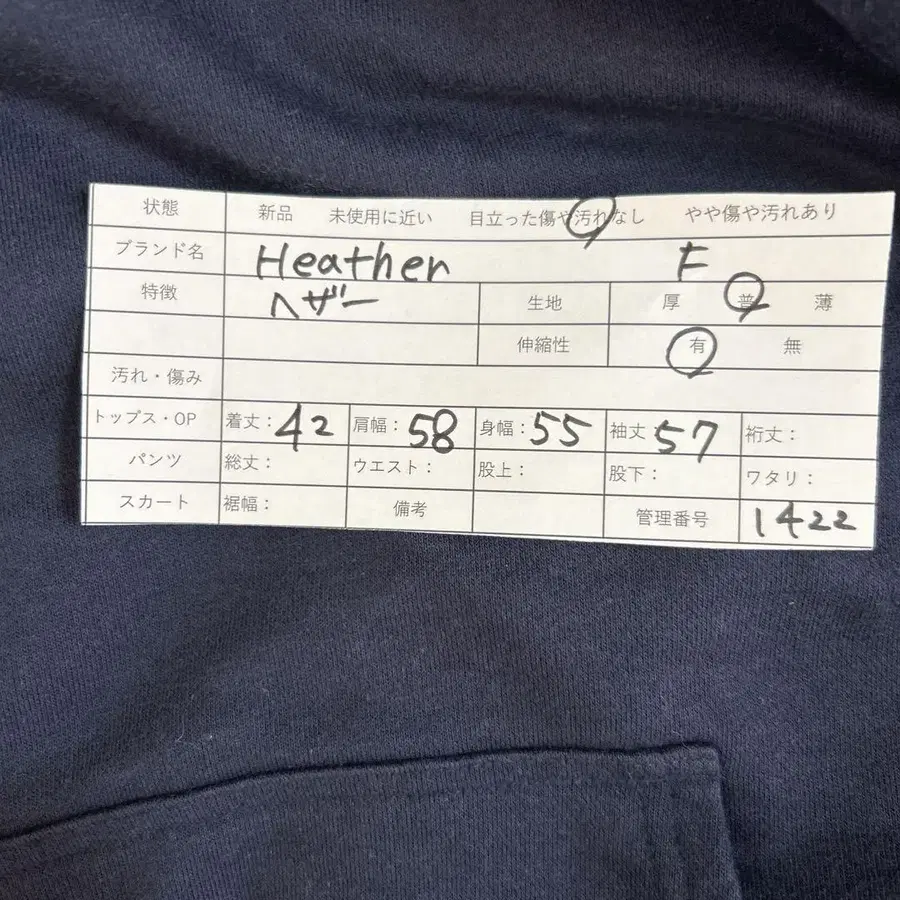 状態 新品 未使用に近い 目立った傷や汚れなし やや傷や汚れあり
ブランド名 Heather F
特徴 ヘザー 生地 厚 普 薄
伸縮性 有 無
汚れ・傷み
トップス・OP 着丈：42 肩幅：58 身幅：55 袖丈 57 裄丈：
パンツ 総丈： ウエスト： 股上： 股下： ワタリ：
スカート 裾幅： 備考 管理番号 1422